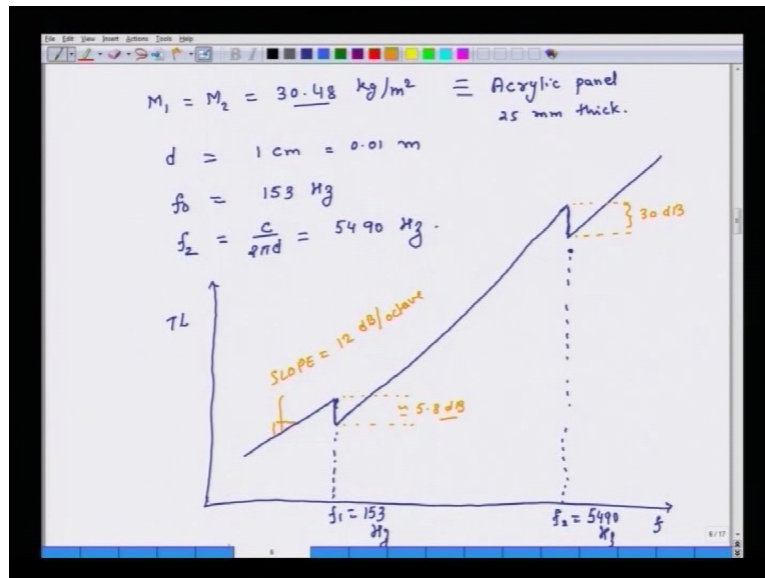 File Edit View Insert Actions Tools Help
M₁ = M₂ = 30.48 kg/m² ≡ Acrylic panel
25 mm thick.
d = 1 cm = 0.01 m
f₀ = 153 Hz
f₂ = c/2πd = 5490 Hz.
30 dB
TL
SLOPE = 12 dB/octave
≈ 5.8 dB
f₁ = 153
Hz
f₂ = 5490
Hz
f
6/17
6